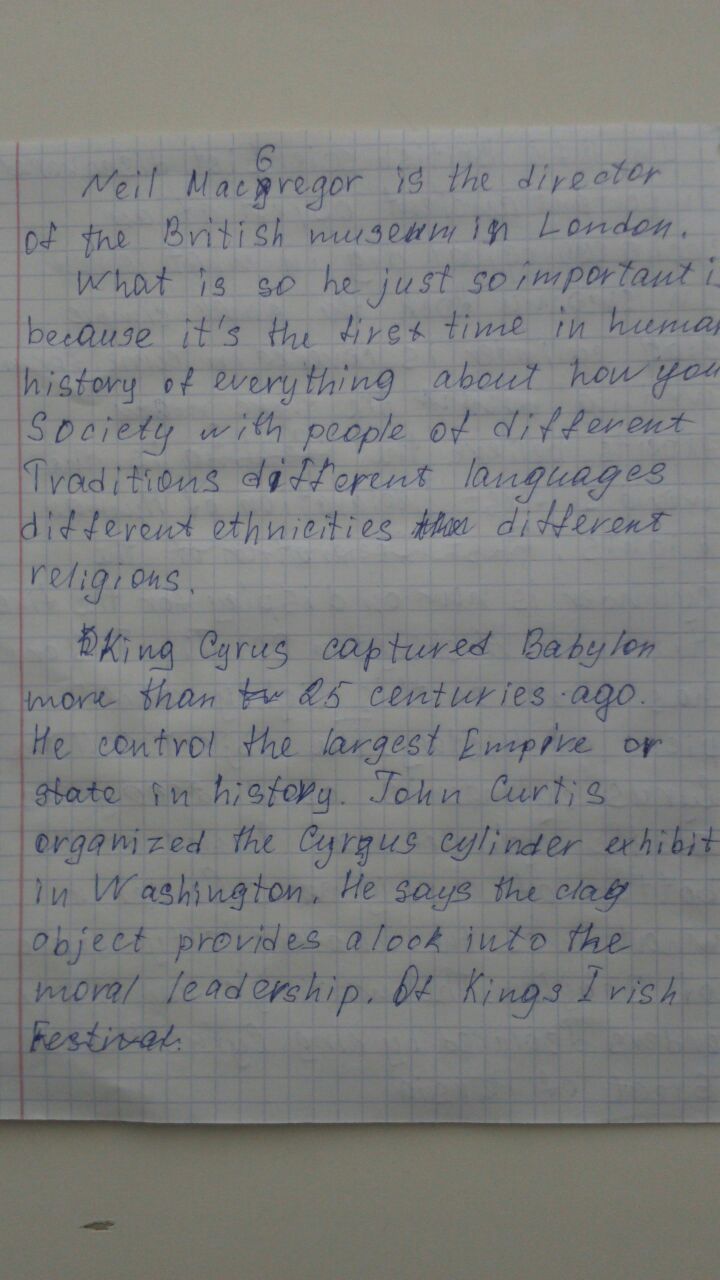 Neil MacGregor is the director
of the British museum in London.
What is so he just so important i
because it's the first time in human
history of everything about how you
Society with people of different
Traditions different languages
different ethnicities different
religions.
King Cyrus captured Babylon
more than 25 centuries ago.
He control the largest Empire or
state in history. John Curtis
organized the Cyrus cylinder exhibit
in Washington. He says the clay
object provides a look into the
moral leadership. Of Kings Irish
Festival.